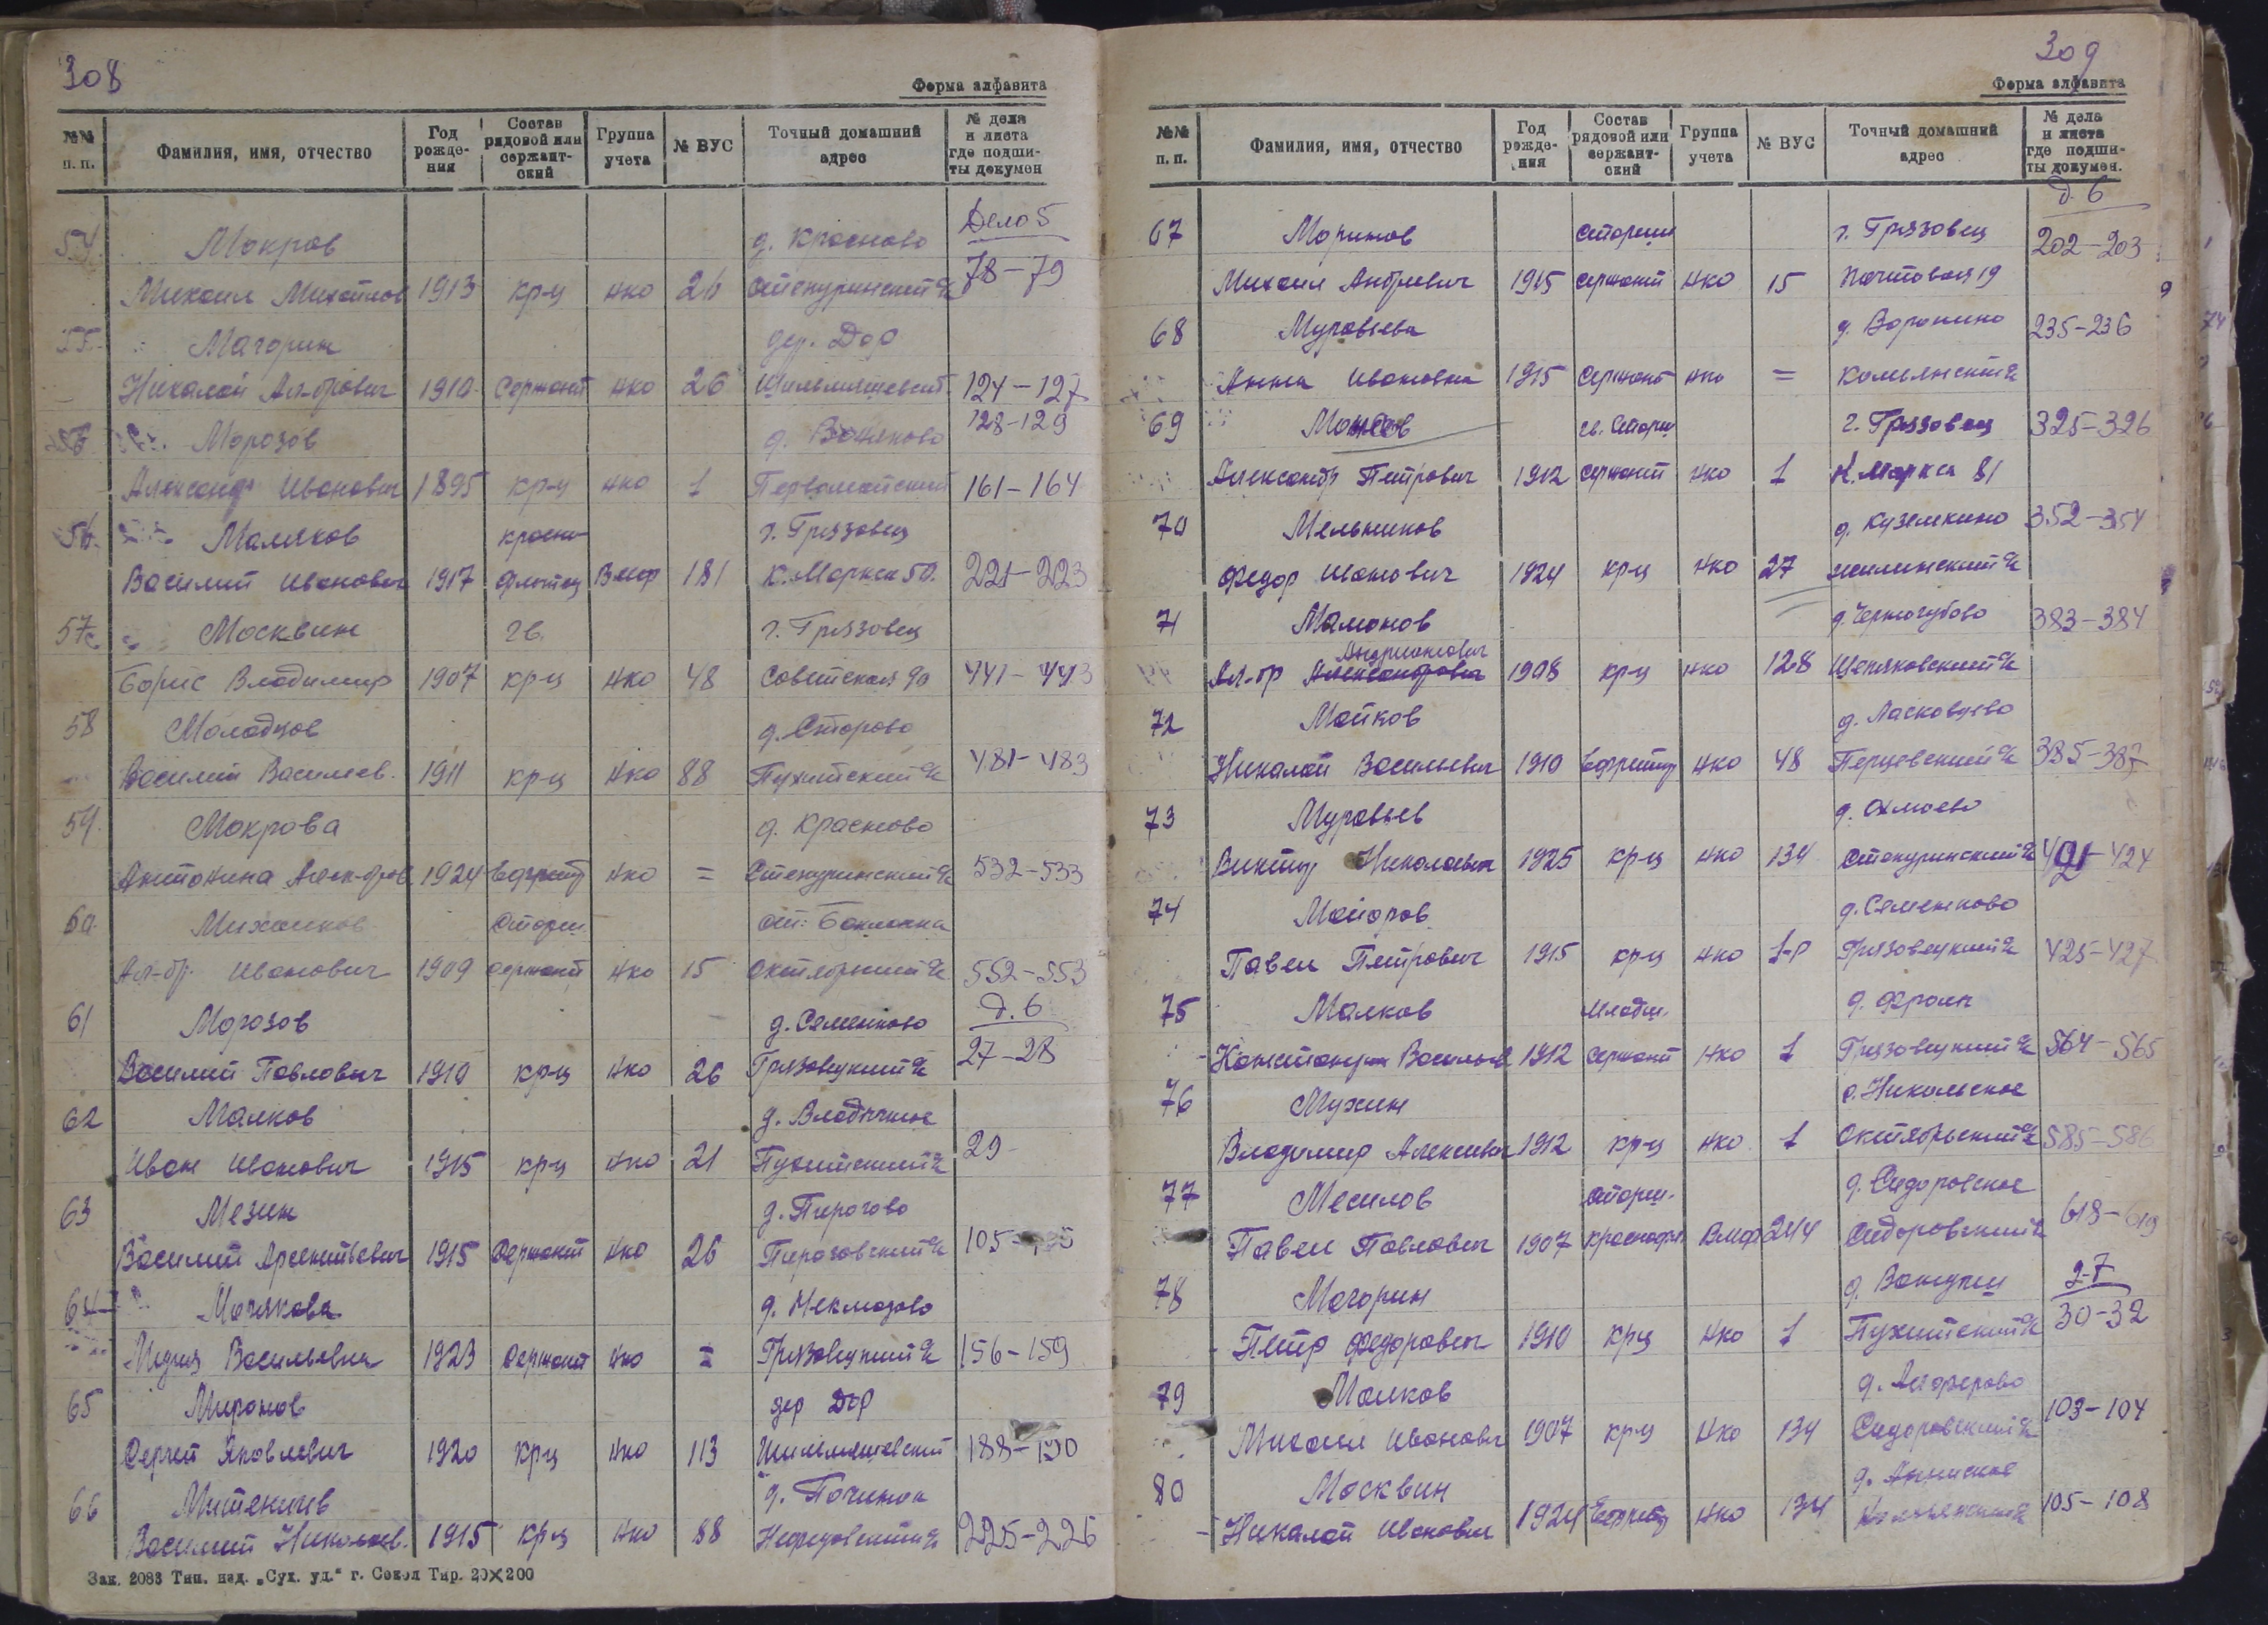 308
Форма алфавита
№№ п. п. Фамилия, имя, отчество Год рождения Состав рядовой или сержантский Группа учета № ВУС Точный домашний адрес № дела и листа где подшиты докумен
54 Мокров д. Красново Дело 5
Михаил Михайлов 1913 кр-ц нко 26 78-79
55 Магорин дер. Дор
Николай Ал-дрович 1910 Сержант нко 26 124-127
56 Морозов 128-129
Александр Иванович 1895 кр-ц нко 1 Первомайский 161-164
56 Маляков красно- г. Грязовец
Василий Иванович 1917 флотец Вмф 181 К. Маркса 50. 221-223
57 Москвин гв. г. Грязовец
Борис Владимир 1907 кр-ц нко 48 Советская 90 441-443
58 Молодцов д. Сторово
Василий Васильев. 1911 кр-ц нко 88 481-483
59. Мокрова д. Красново
Антонина Алек-дров 1924 Ефрейт нко = 532-533
60 Старш.
Ал-др. Иванович 1909 сержант нко 15 Октябрьский 552-553
61 Морозов д. Семенково д. 6
Василий Павлович 1910 кр-ц нко 26 Грязовецкий 27-28
62 Малков д. Владычное
Иван Иванович 1915 кр-ц нко 21 29-
63 Мезин д. Пирогово
Василий Арсентьевич 1915 Сержант нко 26 Пироговский 105-
64 д. Некмозово
Лидия Васильевна 1923 Сержант нко = Грязовецкий 156-159
65 Миронов дер Дор
Сергей Яковлевич 1920 кр-ц нко 113 188-190
66 Митеничев д. Починок
Василий Николаев. 1915 кр-ц нко 88 225-226
Зак. 2083 Тип. изд. „Сух. уд.“ г. Сокол Тир. 20×200
309
Форма алфавита
№№ п. п. Фамилия, имя, отчество Год рождения Состав рядовой или сержантский Группа учета № ВУС Точный домашний адрес № дела и листа где подшиты докумен.
д. 6
67 Маринов старший г. Грязовец 202-203
Михаил Андреевич 1915 сержант нко 15 Почтовая 19
68 Муравьева д. Воронино 235-236
Анна Ивановна 1915 Сержант нко =
69 г. Грязовец 325-326
Александр Петрович 1912 сержант нко 1 К. Маркса 81
70 Мельников д. Куземкино 352-354
Федор Иванович 1924 кр-ц нко 27
71 Мамонов д. Черногубово 383-384
Андрианович
Ал-др Александрович 1908 кр-ц нко 128
72 Майков
Николай Васильевич 1910 Ефрейтор нко 48 Перцевский 385-387
73 Муравьев
Виктор Николаевич 1925 кр-ц нко 134 421-424
74 Майоров д. Семенково
Павел Петрович 1915 кр-ц нко 1-Р Грязовецкий 425-427
75 Малков младш.
Константин Васильев 1912 сержант нко 1 Грязовецкий 564-565
76 Мухин с. Никольское
Владимир Алексеевич 1912 кр-ц нко 1 Октябрьский 585-586
77 Месилов старш. д. Сидоровское
Павел Павлович 1907 Вмф 244 Сидоровский 618-619
78 Могорин д-7
Петр Федорович 1910 кр-ц нко 1 30-32
79 Малков д. Алферово
Михаил Иванович 1907 кр-ц нко 134 Сидоровский 103-104
80 Москвин
Николай Иванович 1924 Ефрейт нко 134 105-108